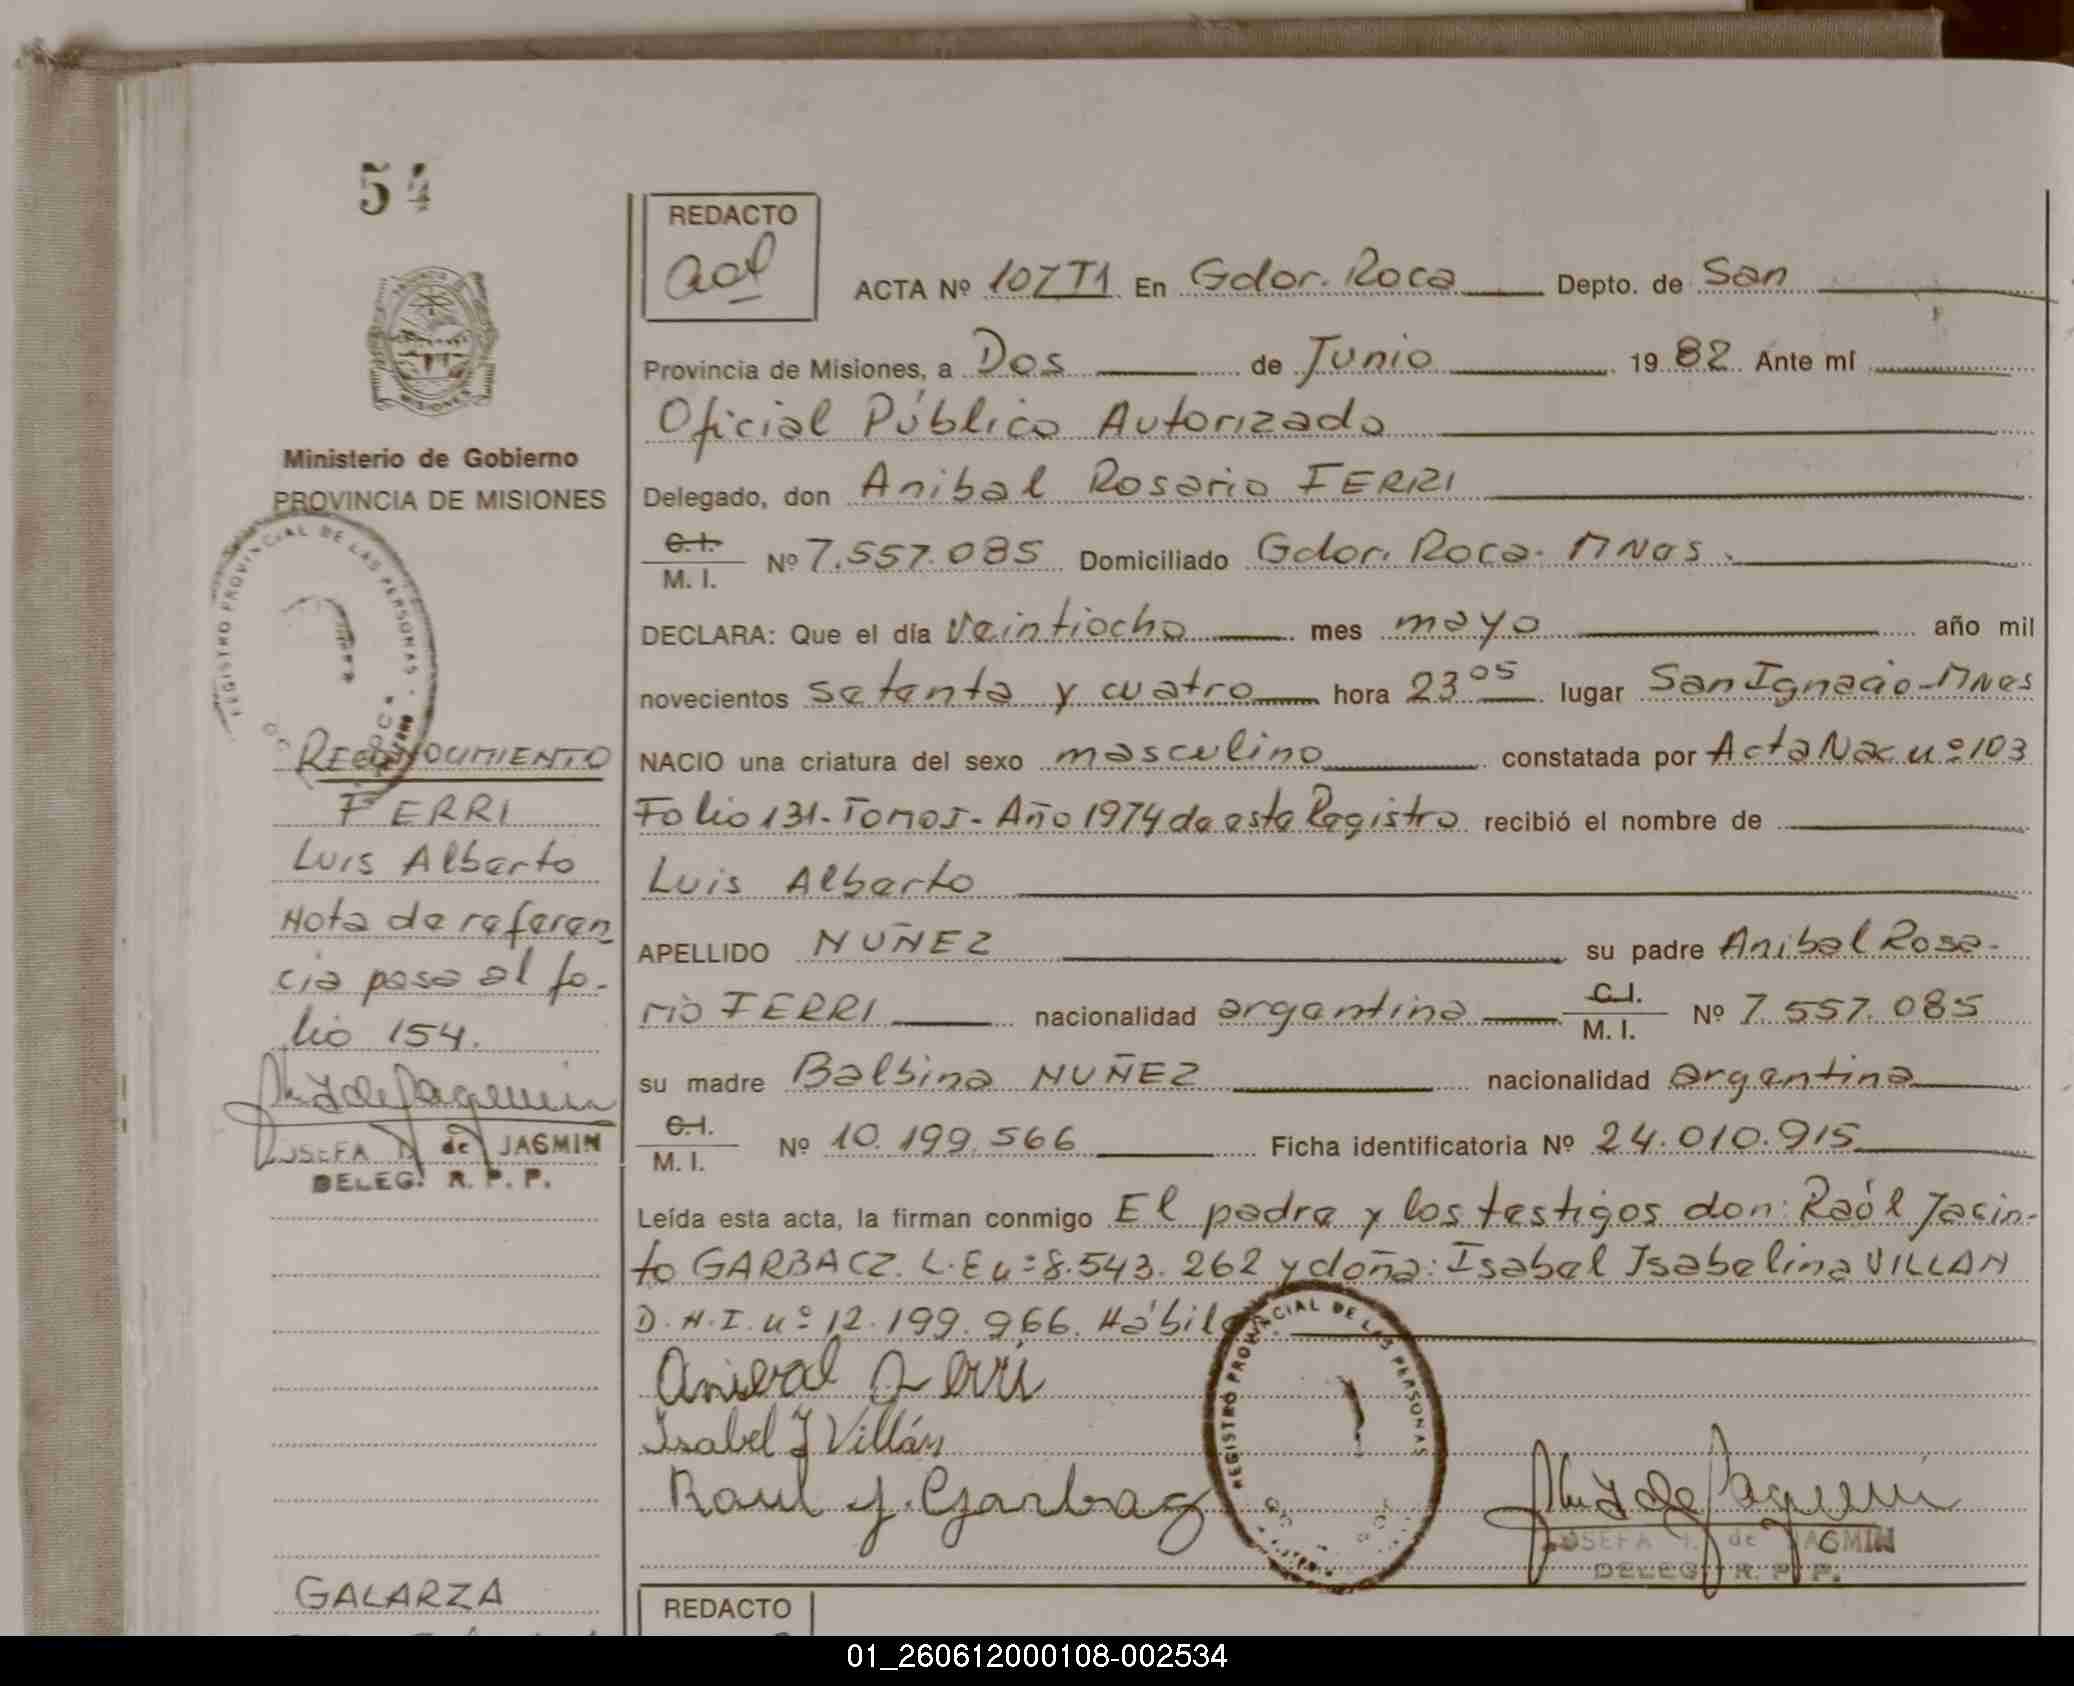 54
REDACTO
ACTA Nº 107T1 En Gdor. Roca Depto. de San
Provincia de Misiones, a Dos de Junio 1982 Ante mí
Oficial Público Autorizado
Ministerio de Gobierno
PROVINCIA DE MISIONES
Delegado, don Anibal Rosario FERRI
C.I.
M. I. Nº 7.557.085 Domiciliado Gdor. Roca. Mnes.
REGISTRO PROVINCIAL DE LAS PERSONAS
DECLARA: Que el día Veintiocho mes mayo año mil
novecientos setenta y cuatro hora 23 05 lugar San Ignacio-Mnes
NACIO una criatura del sexo masculino constatada por Acta Nac nº 103
Folio 131-Tomo I-Año 1974 de este Registro recibió el nombre de
Luis Alberto
APELLIDO NUÑEZ su padre Anibal Rosa-
rio FERRI nacionalidad argentina C.I. M. I. Nº 7.557.085
su madre Balbina NUÑEZ nacionalidad argentina
C.I.
M. I. Nº 10.199.566 Ficha identificatoria Nº 24.010.915
Leída esta acta, la firman conmigo El padre y los testigos don: Raúl Jacin-
to GARBACZ. L.E nº 8.543.262 y doña: Isabel Isabelina VILLAN
D.N.I. nº 12.199.966. Hábiles.
RECONOCIMIENTO
FERRI
Luis Alberto
Nota de referen
cia pasa al fo-
lio 154.
JOSEFA de JASMIN
DELEG. R. P. P.
Anibal Ferri
Isabel I Villán
Raul J. Garbacz
REGISTRO PROVINCIAL DE LAS PERSONAS
JOSEFA de JASMIN
DELEG. R. P. P.
GALARZA
REDACTO
01_260612000108-002534